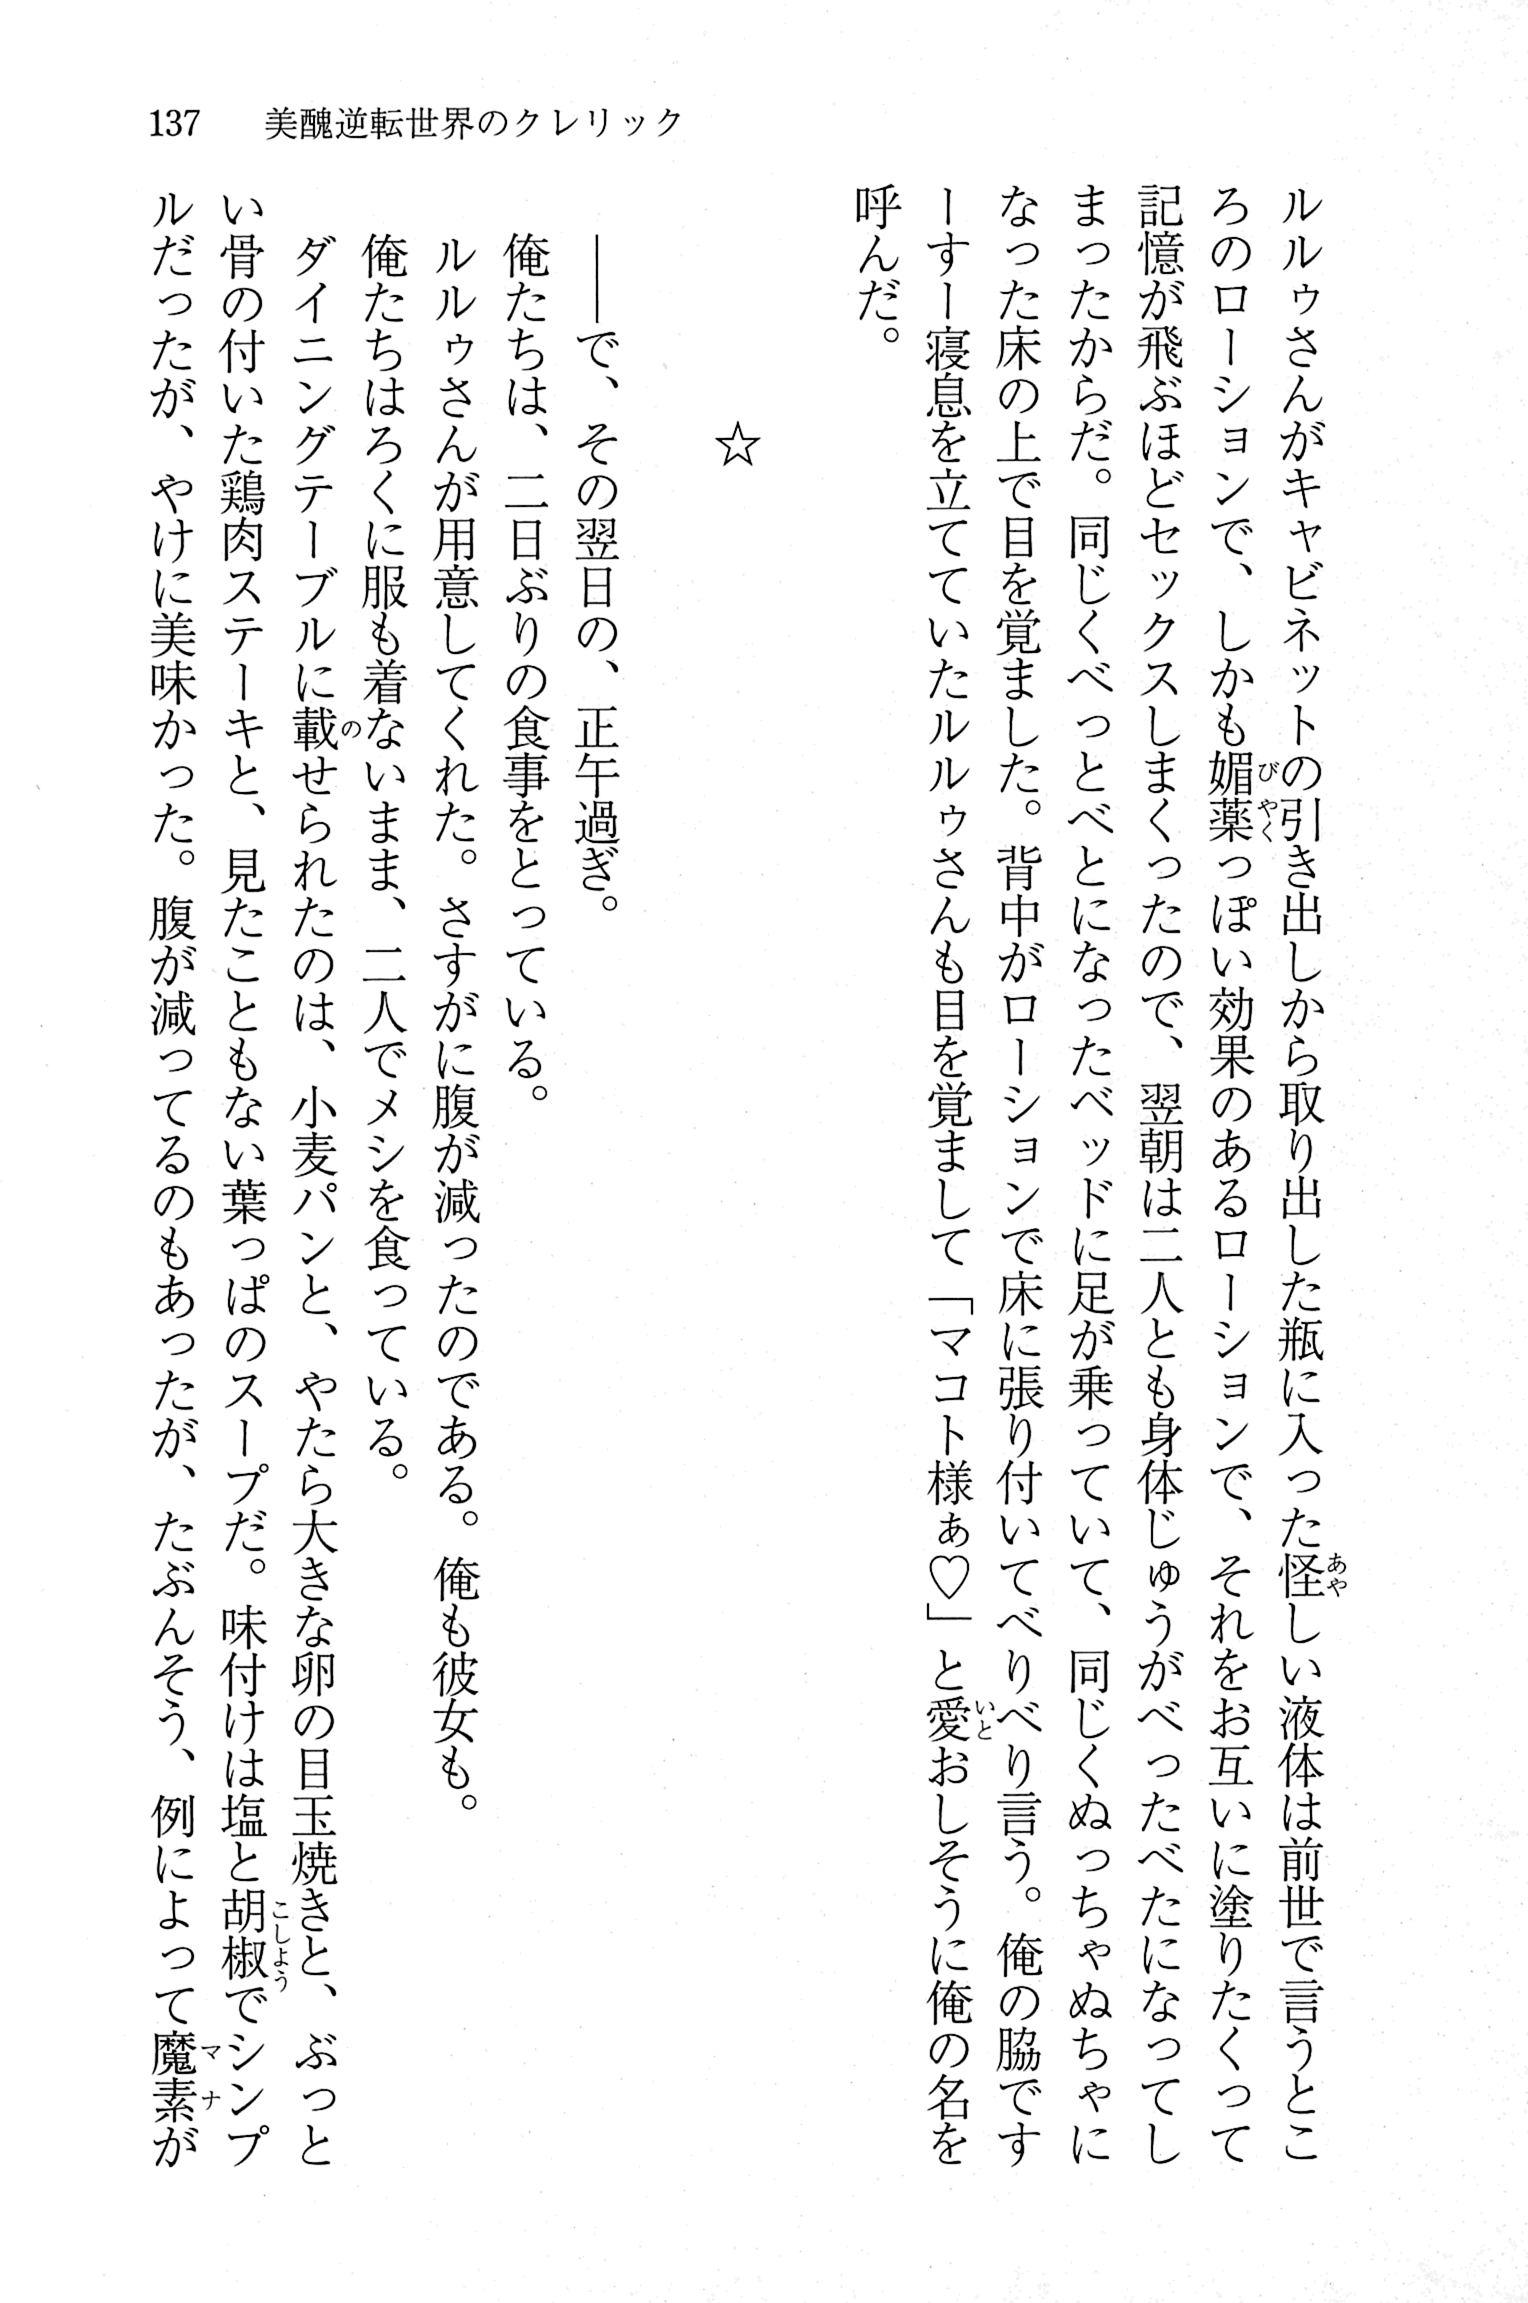 137　美醜逆転世界のクレリック
ルルゥさんがキャビネットの引き出しから取り出した瓶に入った怪しい液体は前世で言うとこ
ろのローションで、しかも媚薬っぽい効果のあるローションで、それをお互いに塗りたくって
記憶が飛ぶほどセックスしまくったので、翌朝は二人とも身体じゅうがべったべたになってし
まったからだ。同じくべっとべとになったベッドに足が乗っていて、同じくぬっちゃぬちゃに
なった床の上で目を覚ました。背中がローションで床に張り付いてべりべり言う。俺の脇です
ーすー寝息を立てていたルルゥさんも目を覚まして「マコト様ぁ♡」と愛おしそうに俺の名を
呼んだ。
☆
――で、その翌日の、正午過ぎ。
俺たちは、二日ぶりの食事をとっている。
ルルゥさんが用意してくれた。さすがに腹が減ったのである。俺も彼女も。
俺たちはろくに服も着ないまま、二人でメシを食っている。
ダイニングテーブルに載せられたのは、小麦パンと、やたら大きな卵の目玉焼きと、ぶっと
い骨の付いた鶏肉ステーキと、見たこともない葉っぱのスープだ。味付けは塩と胡椒でシンプ
ルだったが、やけに美味かった。腹が減ってるのもあったが、たぶんそう、例によって魔素が